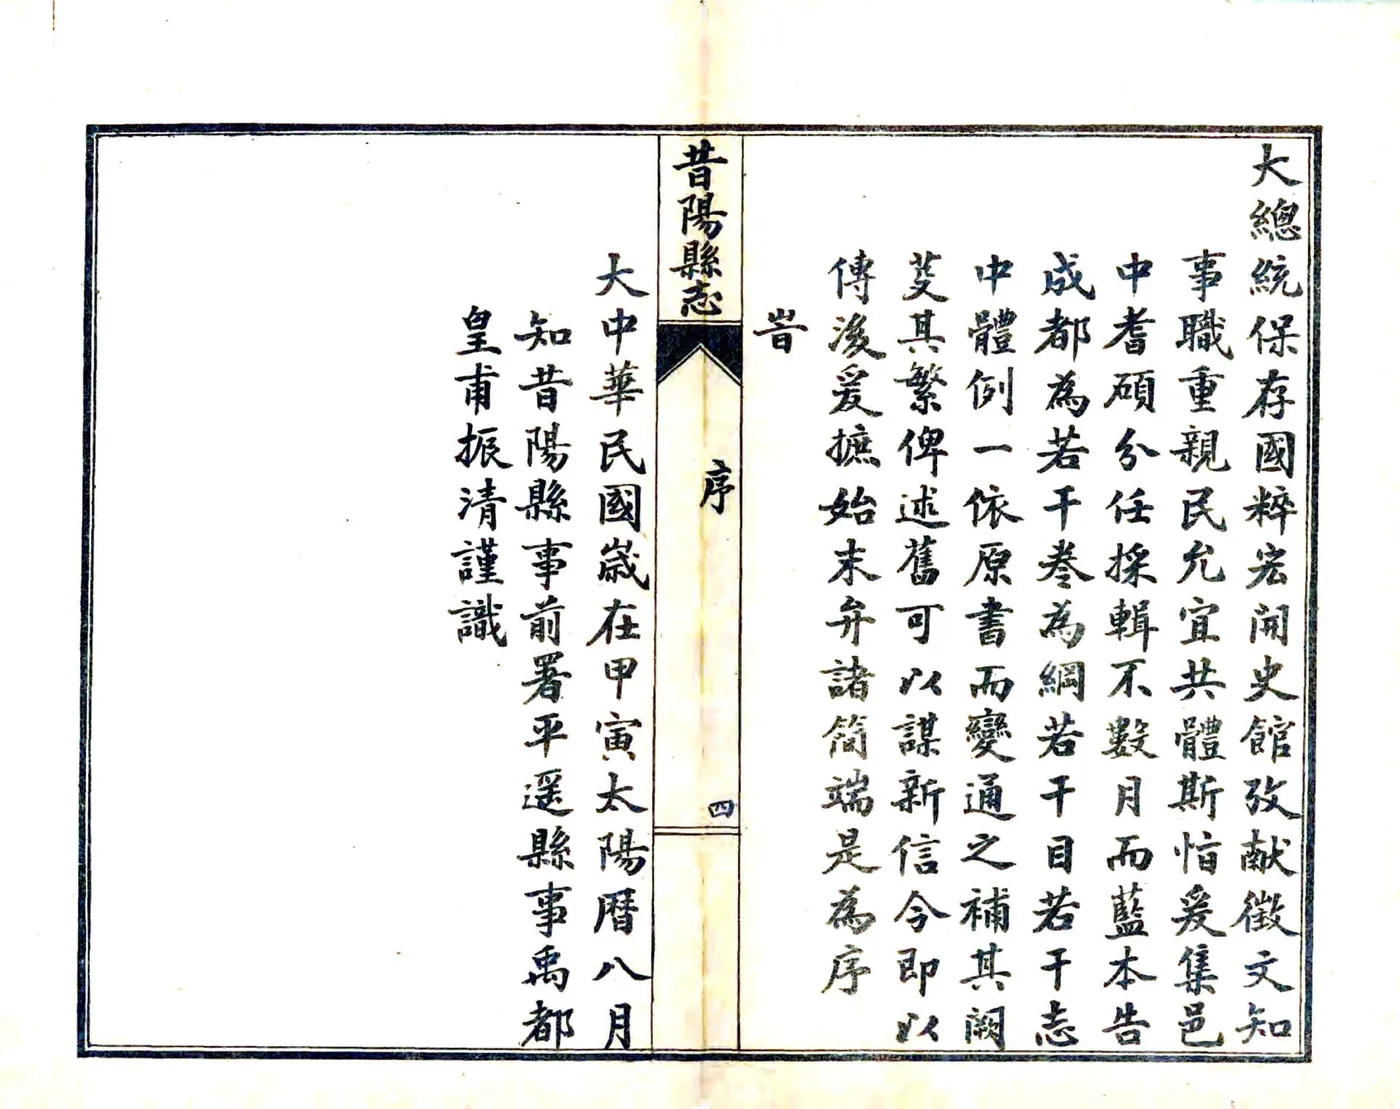 大總統保存國粹宏開史館攷献徵文知
事職重親民允宜共體斯恉爰集邑
中耆碩分任採輯不數月而藍本告
成都為若干卷為綱若干目若干志
中體例一依原書而變通之補其闕
芟其繁俾述舊可以謀新信今即以
傳後爰摭始末弁諸簡端是為序
旹
昔陽縣志
序
四
大中華民國歲在甲寅太陽曆八月
知昔陽縣事前署平遥縣事禹都
皇甫振清謹識